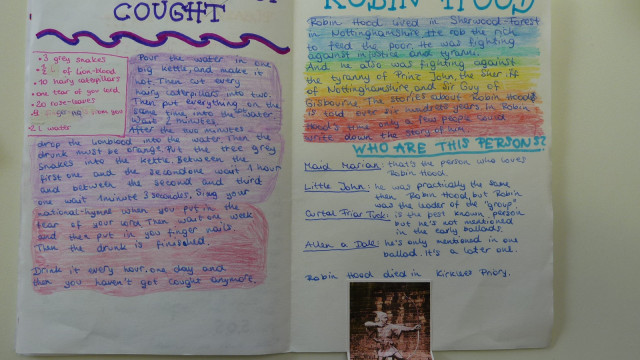 COUGHT
• 3 grey snakes
• ½ l of lion-blood
• 10 hairy caterpillars
• one tear of your lord
• 20 rose-leaves
• 2 L water
Pour the water in one
big kettle, and make it
hot. Then cut every
hairy caterpillars into two.
Then put everything on the
same time, into the water.
Wait 2 minutes.
After the two minutes
drop the lionblood into the water. Then the
drunk must be orange. Put the tree grey
snakes into the kettle. Between the
first one and the second one wait 1 hour
and between the second and third
one wait 1 minute 3 seconds. Sing your
national-hymne when you put in the
tear of your lord. Then wait one week
and then put in you finger nails.
Then the drunk is finished.
Drink it every hour one day and
then you haven't got cought anymore.
ROBIN HOOD
Robin Hood lived in Sherwood-Forest
in Nottinghamshire. He rob the rich
to feed the poor. He was fighting
against injustice and tyranny.
And he also was fighting against
the tyranny of Prince John, the Sheriff
of Nottinghamshire, and Sir Guy of
Gisbourne. The stories about Robin Hood
is told over six hundred years. In Robin
Hood's time only a few people could
write down the story of him.
WHO ARE THIS PERSONS?
Maid Marian: that's the person who loves
Robin Hood.
Little John: he was practically the same
then Robin Hood, but Robin
was the leader of the "group".
Curtal Friar Tuck: is the best known person
but he's not mentioned
in the early ballads.
Allen a Dale: he's only mentioned in one
ballad. It's a later one.
Robin Hood died in Kirklees Priory.